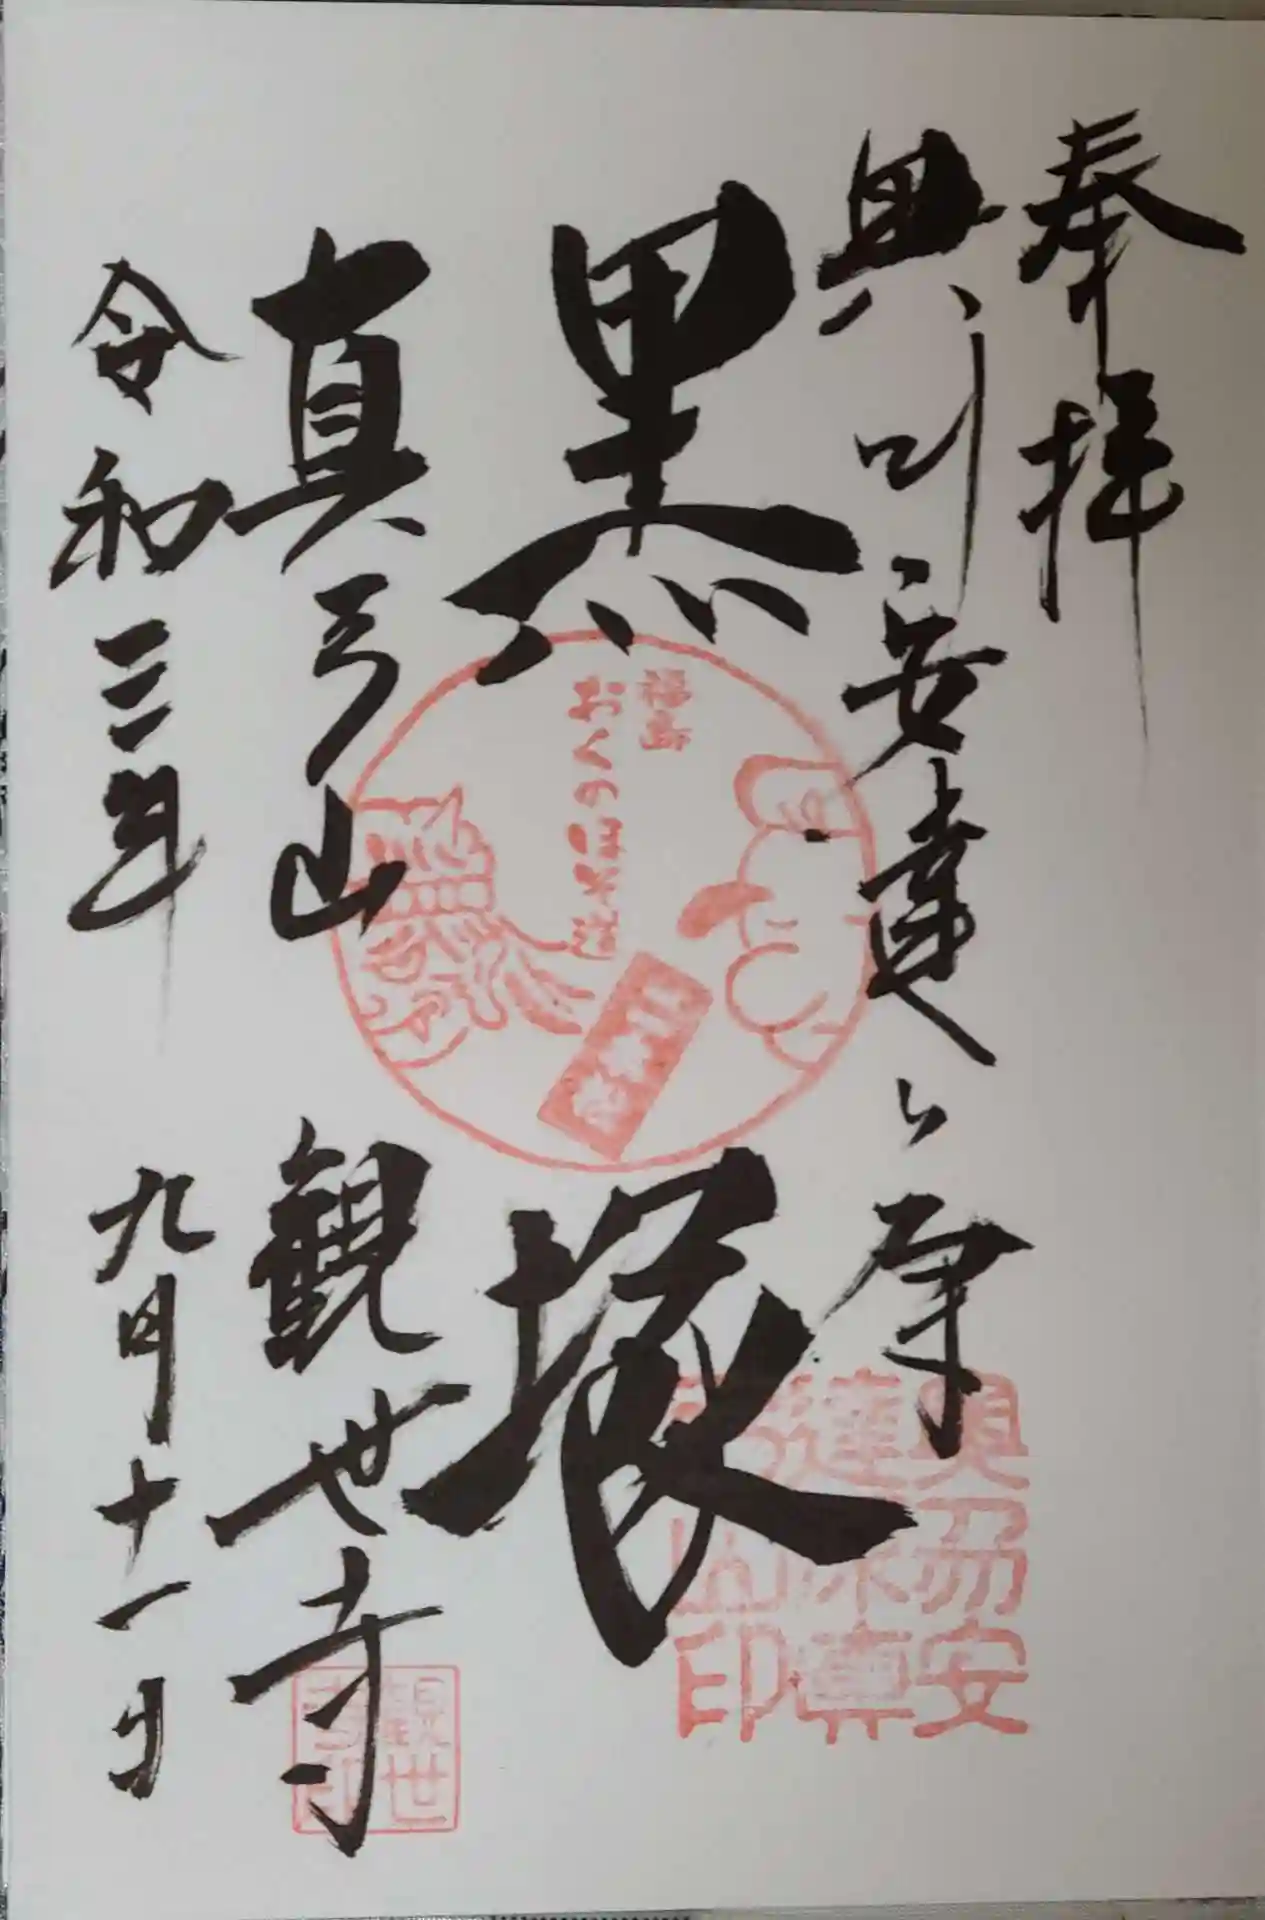 奉拝
奥州安達ヶ原
黒塚
真弓山 観世寺
令和三年 九月十一日
福島
おくの細道
二本松
奥州安
達
印
観世
寺印